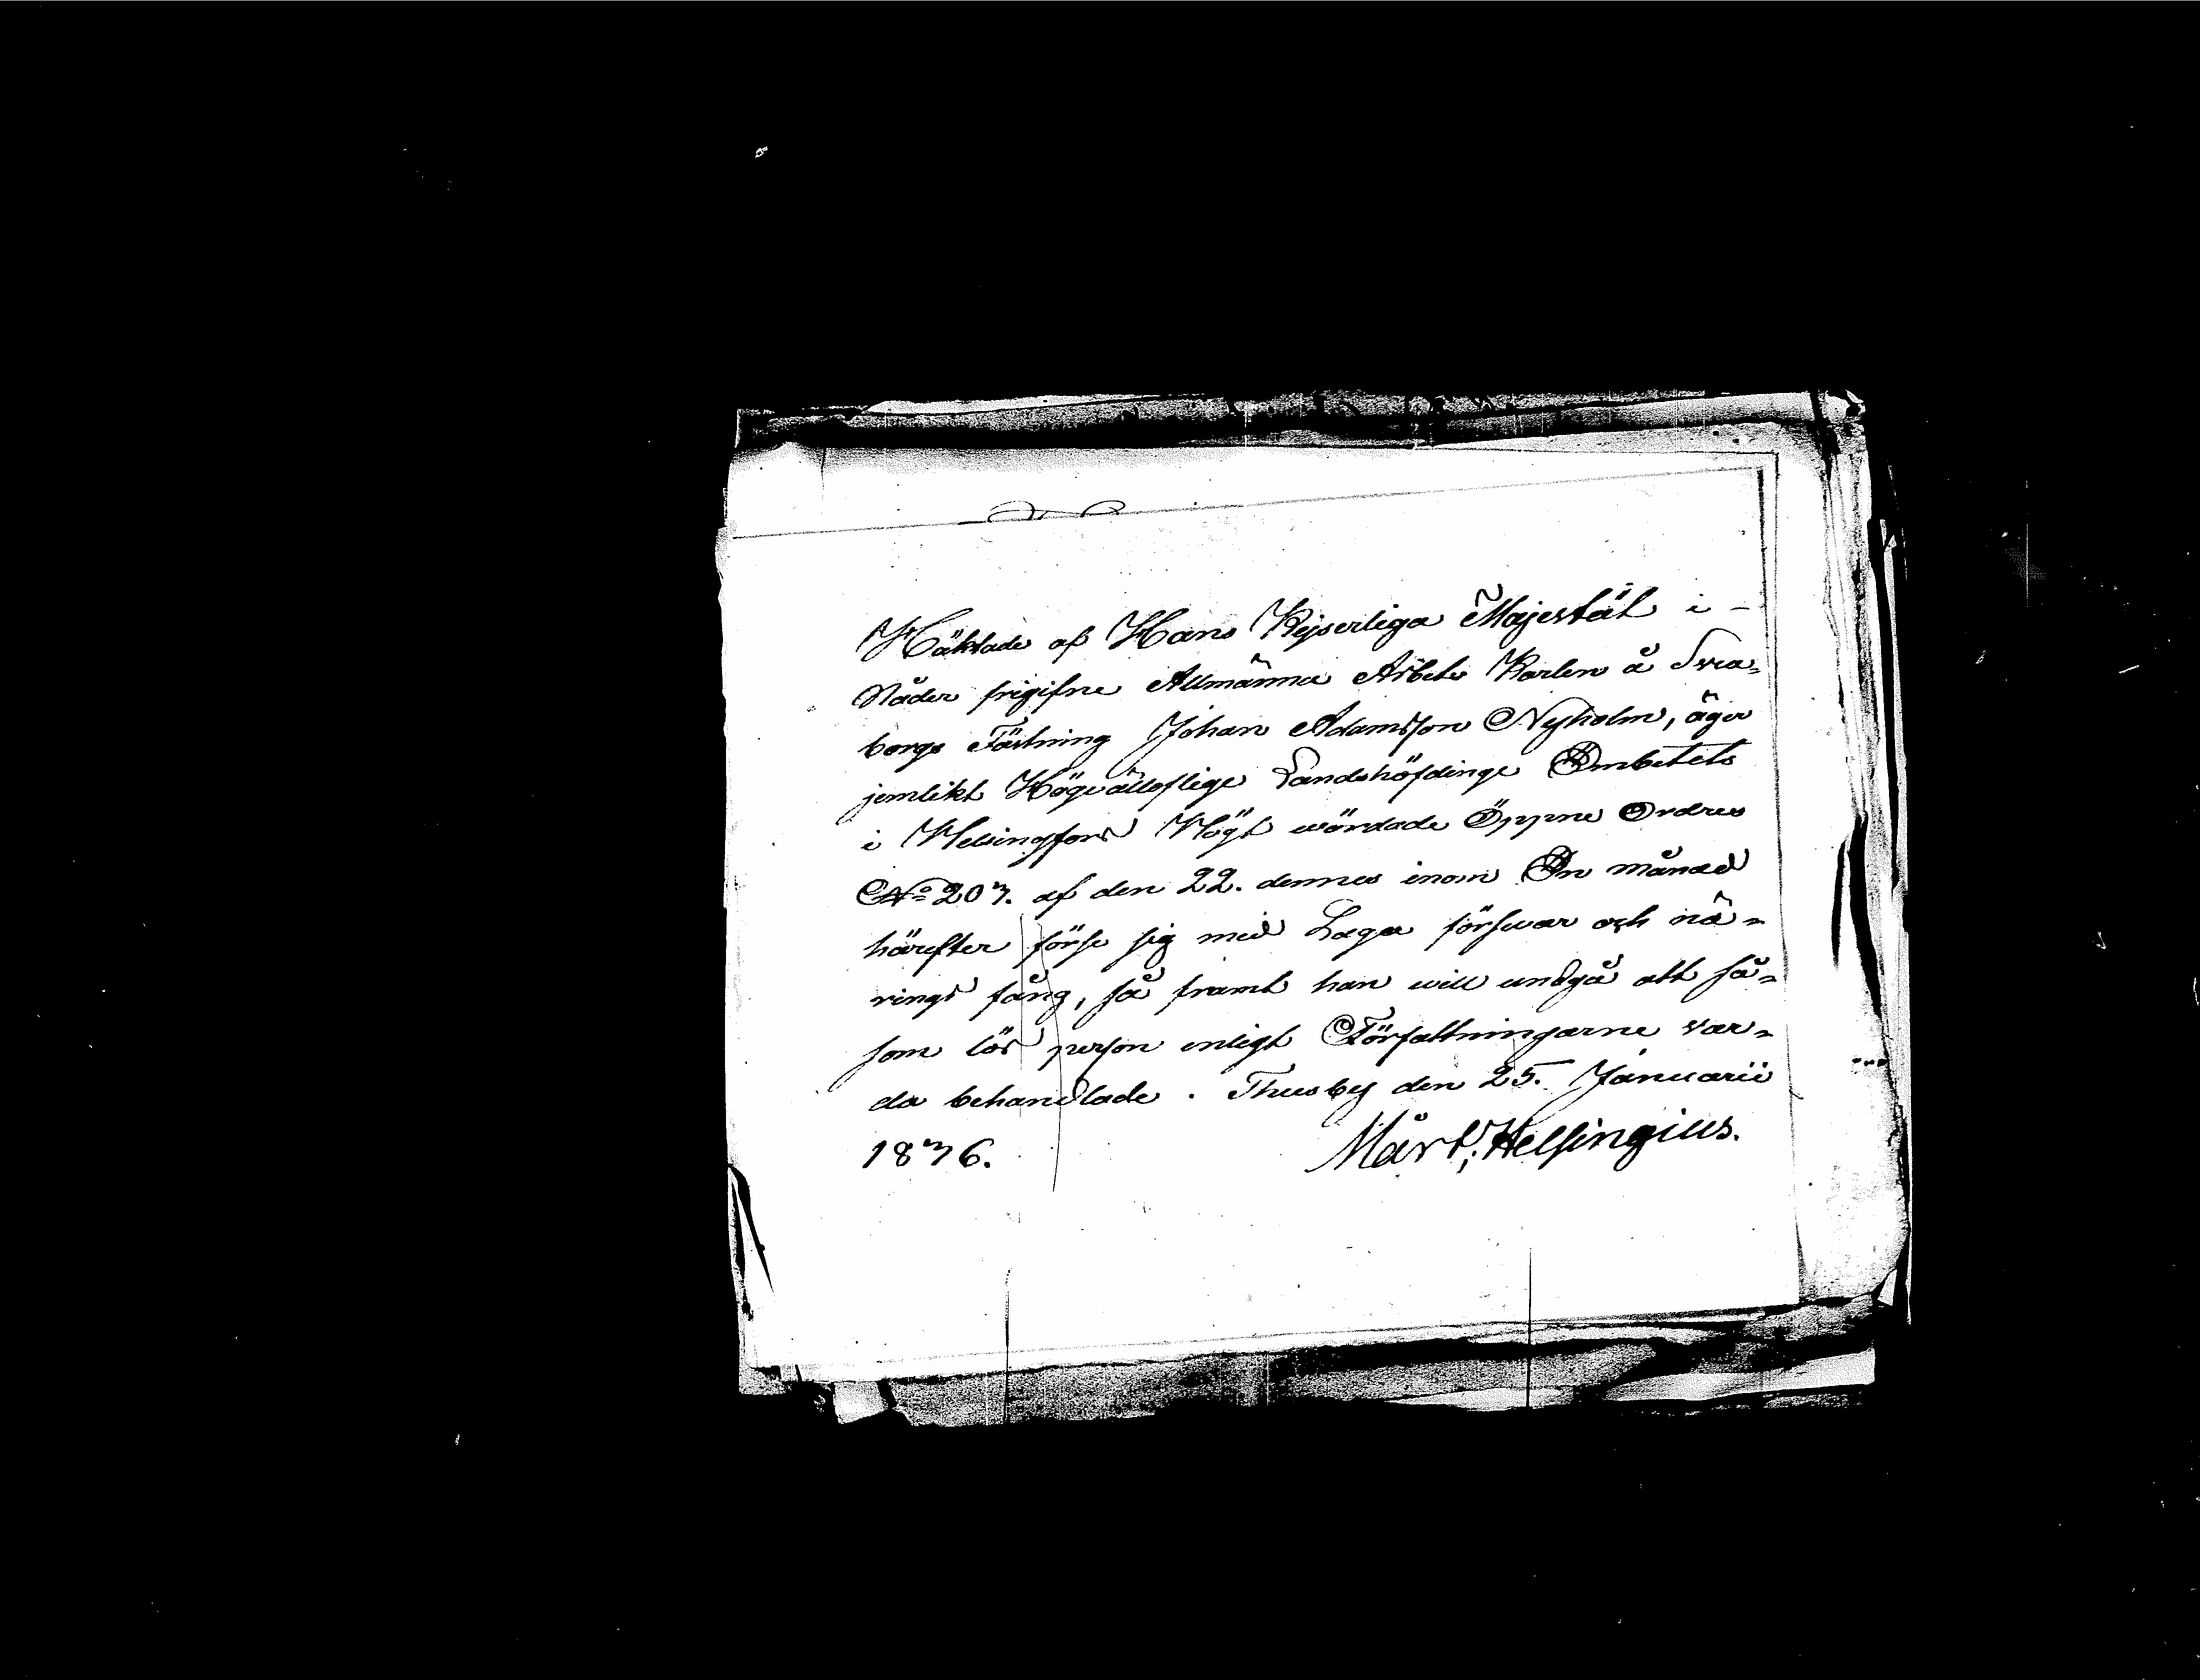 Häktade af Hans Kejserliga Majestät i -
Nåder frigifne Allmänna Arbets Karlen å Svea-
borgs Fästning Johan Adamsson Nyholm, äger
jemlikt Högvällofliga Landshöfdinge Embetets
i Helsingfors Högt wördade Öppne Ordres
No 203. af den 22. dennes inom En månad
härefter förse sig med Laga förswar och nä-
rings fång, så framt han will undgå att så-
som lös person enligt Författningarne var-
da behandlade. Thusby den 25. Januarii
1836. Mårt: Helsingius.